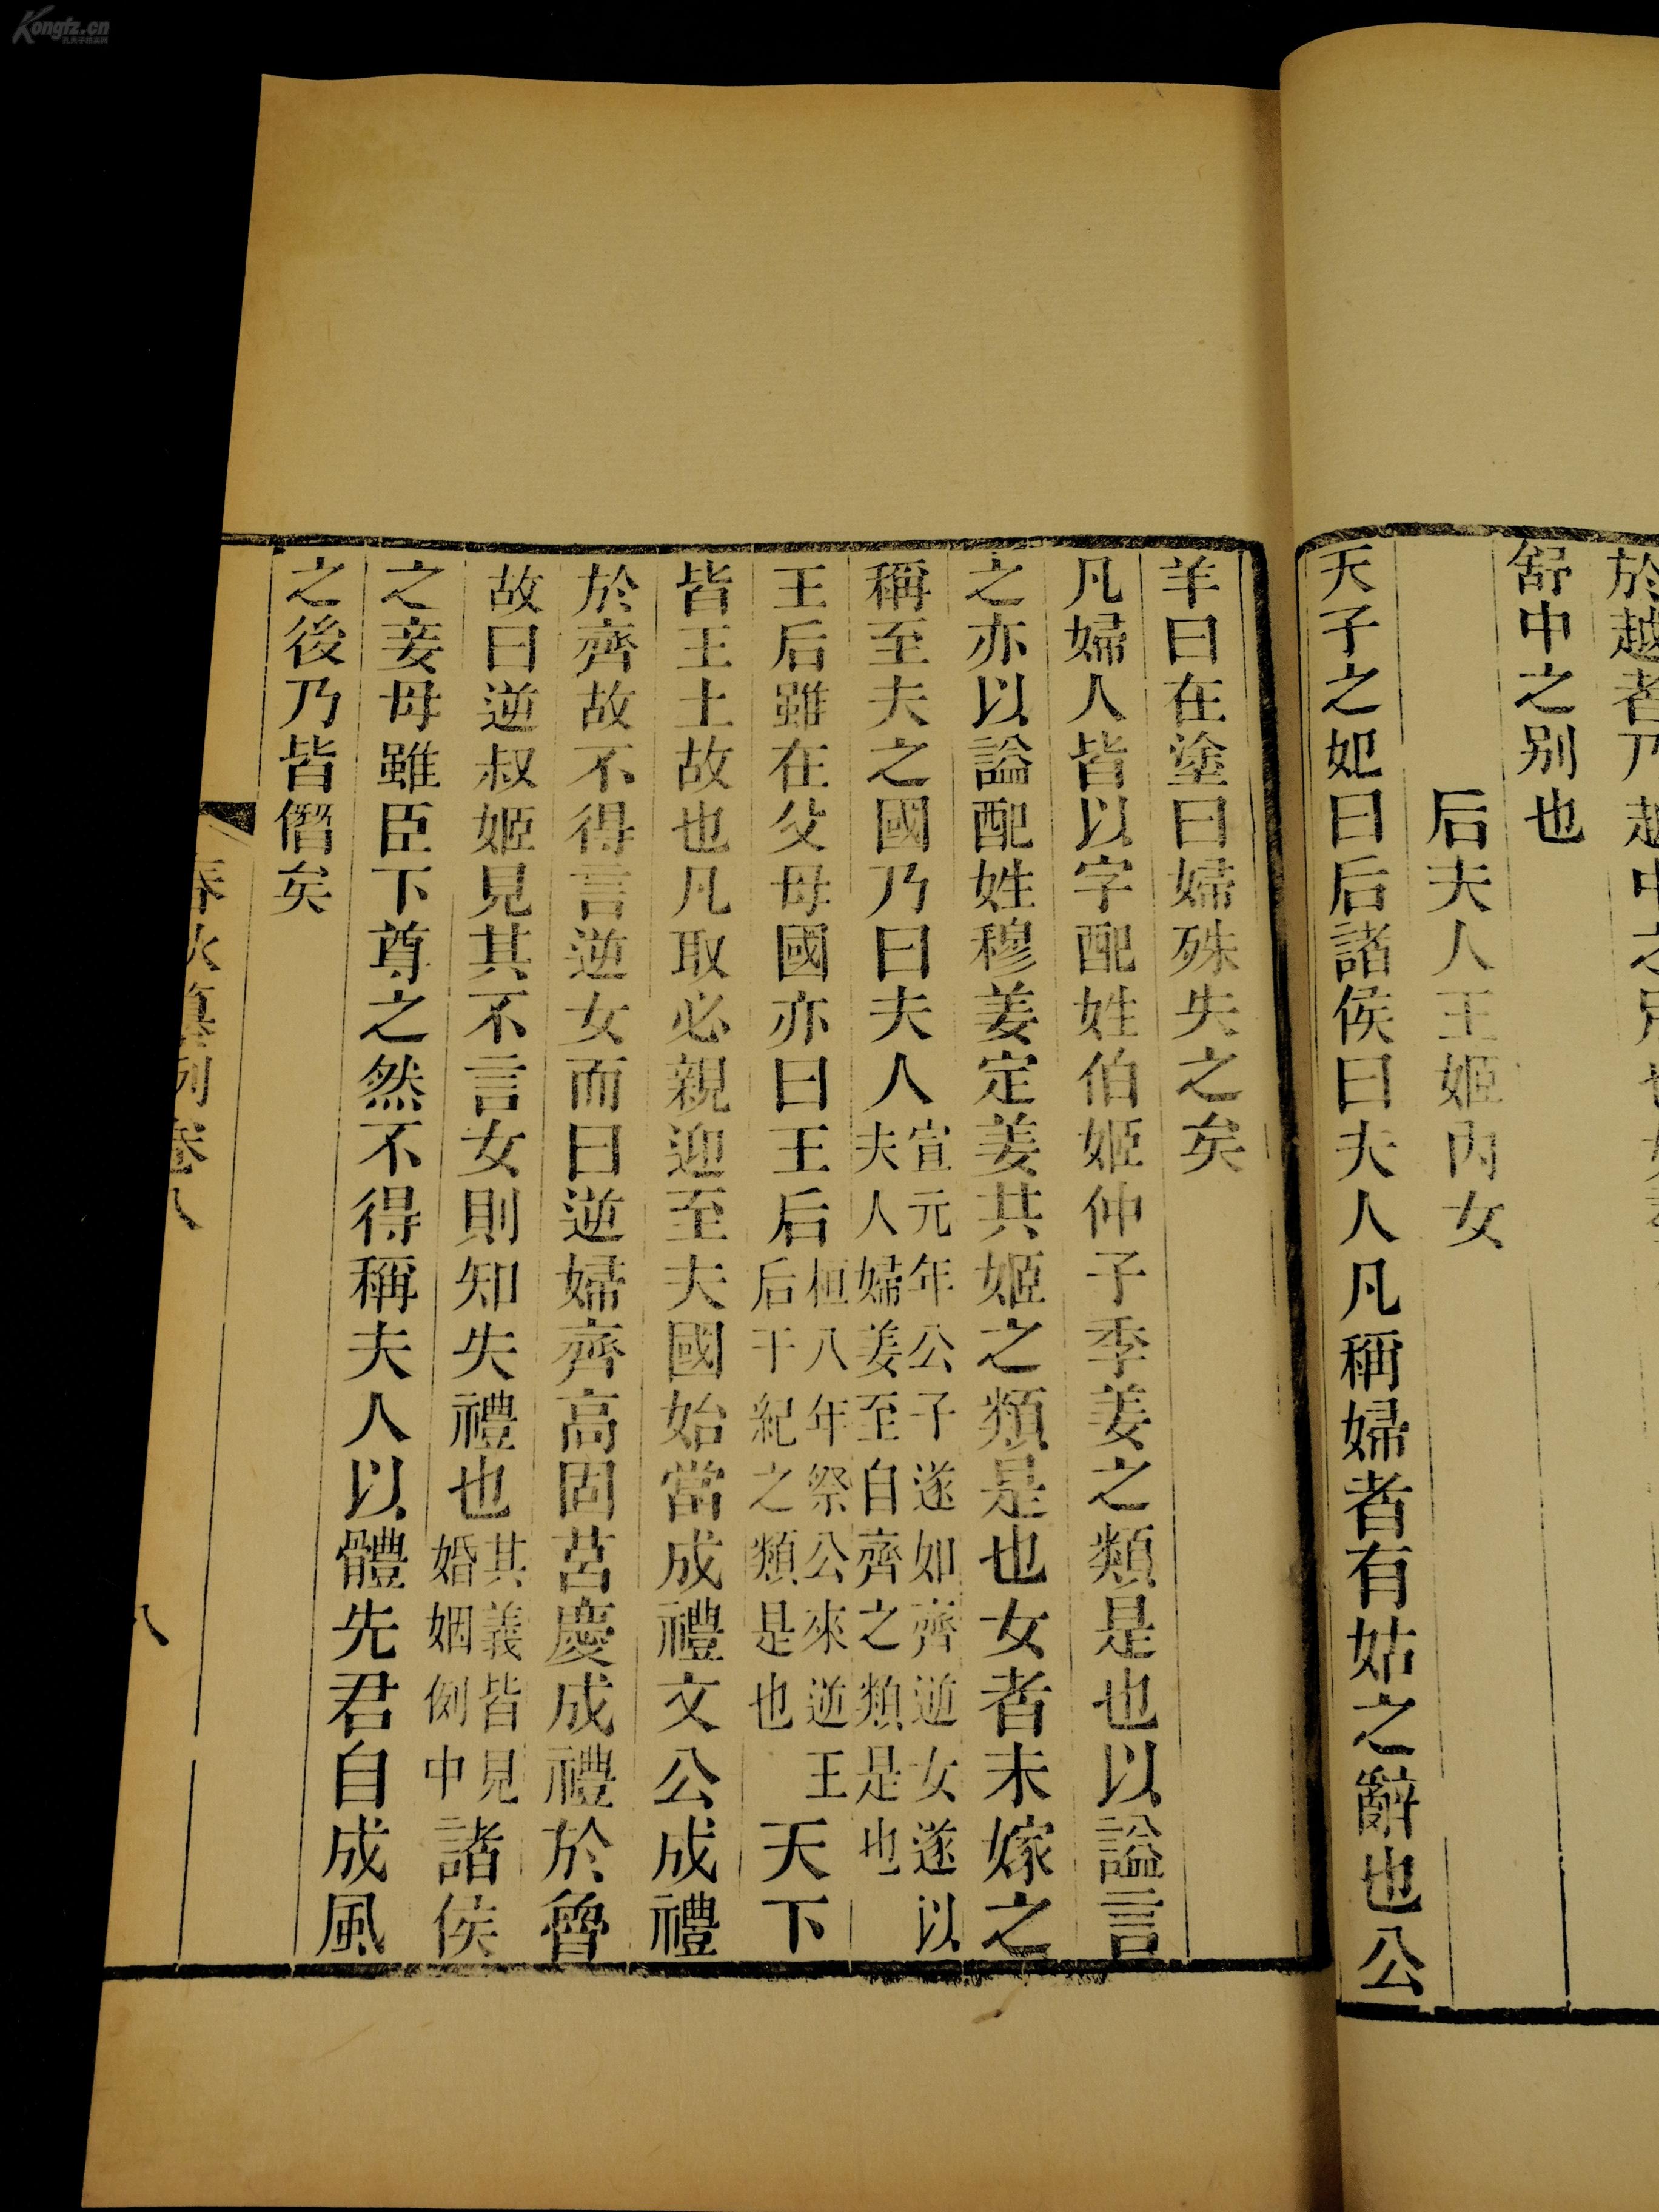 舒中之别也
后夫人王姬內女
天子之妃曰后諸侯曰夫人凡稱婦者有姑之辭也公
羊曰在塗曰婦殊失之矣
凡婦人皆以字配姓伯姬仲子季姜之類是也以謚言
之亦以謚配姓穆姜定姜共姬之類是也女者未嫁之
稱至夫之國乃曰夫人宣元年公子遂如齊逆女遂以夫人婦姜至自齊之類是也
王后雖在父母國亦曰王后桓八年祭公來逆王后于紀之類是也天下
皆王土故也凡取必親迎至夫國始當成禮文公成禮
於齊故不得言逆女而曰逆婦齊高固莒慶成禮於魯
故曰逆叔姬見其不言女則知失禮也其義皆見婚姻例中諸侯
之妾母雖臣下尊之然不得稱夫人以體先君自成風
之後乃皆僭矣
卷八
八
Kongfz.cn